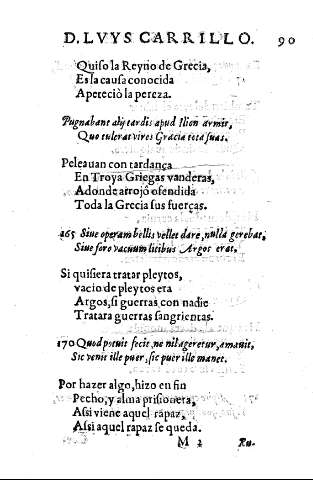 D. LVYS CARRILLO. 90
Quiſo la Reyno de Grecia,
Es la cauſa conocida
Apeteciò la pereza.
Pugnabant alij tardis apud Ilion armis,
Quo tulerat vires Gracia tota ſuas.
Peleauan con tardança
En Troya Griegas vanderas,
Adonde arrojò ofendida
Toda la Grecia sus fuerças.
165 Siue operam bellis vellet dare, nulla gerebat,
Siue foro vacuum litibus Argos erat.
Si quiſiera tratar pleytos,
vacio de pleytos era
Argos, ſi guerras con nadie
Tratara guerras ſangrientas.
170 Quod potuit fecit, ne nil ageretur, amauit,
Sic venit ille puer, ſic puer ille manet.
Por hazer algo, hizo en fin
Pecho, y alma priſionera,
Aſsi viene aquel rapaz,
Aſsi aquel rapaz ſe queda.
M 2 Ru-